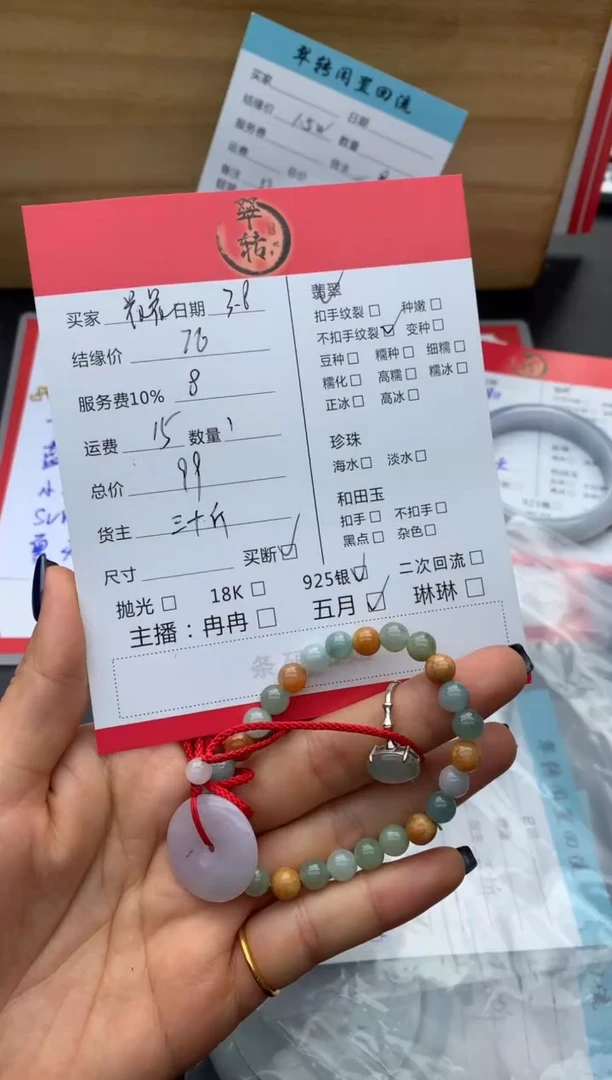 翠转闲置回流
买家 日期
结缘价 1.5w 数量
服务费 货主
运费 总价
备注
翠转
买家 日期 3.8
结缘价 76
服务费10% 8
运费 15 数量 1
总价 99
货主 三十斤
尺寸 买断☑
抛光□ 18K□ 925银☑ 二次回流□
主播：冉冉□ 五月☑ 琳琳□
翡翠
扣手纹裂□ 种嫩□
不扣手纹裂☑ 变种□
豆种□ 糯种□ 细糯□
糯化□ 高糯□ 糯冰□
正冰□ 高冰□
珍珠
海水□ 淡水□
和田玉
扣手□ 不扣手□
黑点□ 杂色□